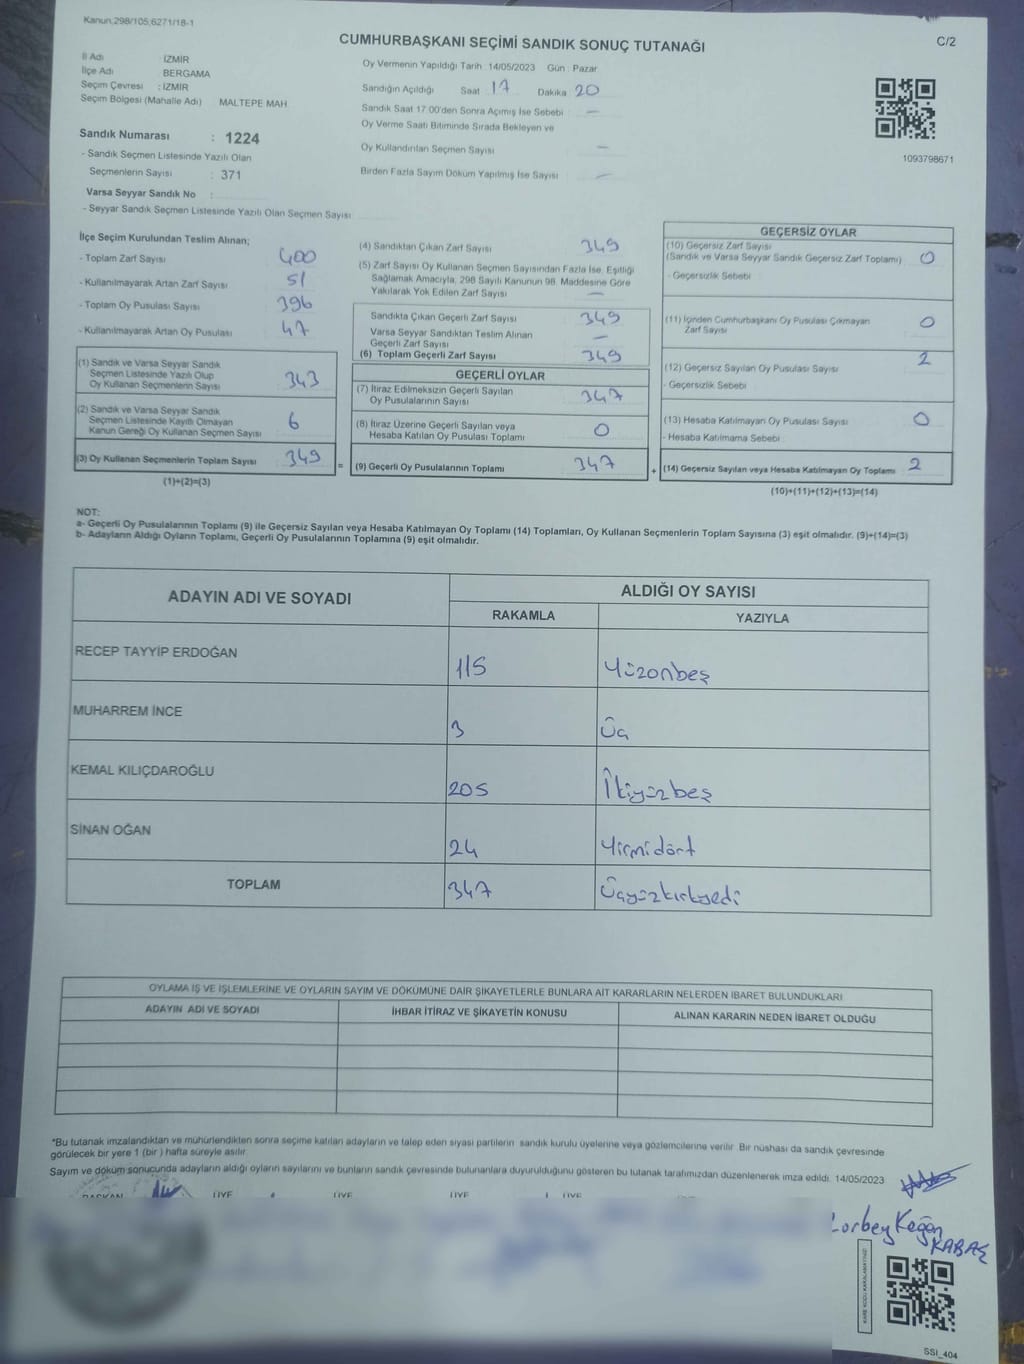 Kanun;298/105,6271/18-1
CUMHURBAŞKANI SEÇİMİ SANDIK SONUÇ TUTANAĞI
C/2
İl Adı : İZMİR
İlçe Adı BERGAMA
Seçim Çevresi : İZMİR
Seçim Bölgesi (Mahalle Adı) MALTEPE MAH.
Oy Vermenin Yapıldığı Tarih 14/05/2023 Gün : Pazar
Sandığın Açıldığı Saat 17 Dakika 20
Sandık Saat 17:00'den Sonra Açımış İse Sebebi : —
Oy Verme Saati Bitiminde Sırada Bekleyen ve
Oy Kullandırılan Seçmen Sayısı —
Birden Fazla Sayım Döküm Yapılmış İse Sayısı —
1093798671
Sandık Numarası : 1224
- Sandık Seçmen Listesinde Yazılı Olan
Seçmenlerin Sayısı : 371
Varsa Seyyar Sandık No :
- Seyyar Sandık Seçmen Listesinde Yazılı Olan Seçmen Sayısı
İlçe Seçim Kurulundan Teslim Alınan;
- Toplam Zarf Sayısı 400
- Kullanılmayarak Artan Zarf Sayısı 51
- Toplam Oy Pusulası Sayısı 396
- Kullanılmayarak Artan Oy Pusulası 47
(1) Sandık ve Varsa Seyyar Sandık
Seçmen Listesinde Yazılı Olup
Oy Kullanan Seçmenlerin Sayısı 343
(2) Sandık ve Varsa Seyyar Sandık
Seçmen Listesinde Kayıtlı Olmayan
Kanun Gereği Oy Kullanan Seçmen Sayısı 6
(3) Oy Kullanan Seçmenlerin Toplam Sayısı 349 =
(1)+(2)=(3)
(4) Sandıktan Çıkan Zarf Sayısı 349
(5) Zarf Sayısı Oy Kullanan Seçmen Sayısından Fazla İse, Eşitliği
Sağlamak Amacıyla, 298 Sayılı Kanunun 98. Maddesine Göre
Yakılarak Yok Edilen Zarf Sayısı —
Sandıkta Çıkan Geçerli Zarf Sayısı 349
Varsa Seyyar Sandıktan Teslim Alınan
Geçerli Zarf Sayısı —
(6) Toplam Geçerli Zarf Sayısı 349
GEÇERLİ OYLAR
(7) İtiraz Edilmeksizin Geçerli Sayılan
Oy Pusulalarının Sayısı 347
(8) İtiraz Üzerine Geçerli Sayılan veya
Hesaba Katılan Oy Pusulası Toplamı 0
(9) Geçerli Oy Pusulalarının Toplamı 347 +
GEÇERSİZ OYLAR
(10) Geçersiz Zarf Sayısı
(Sandık ve Varsa Seyyar Sandık Geçersiz Zarf Toplamı) 0
- Geçersizlik Sebebi
(11) İçinden Cumhurbaşkanı Oy Pusulası Çıkmayan
Zarf Sayısı 0
(12) Geçersiz Sayılan Oy Pusulası Sayısı 2
- Geçersizlik Sebebi
(13) Hesaba Katılmayan Oy Pusulası Sayısı 0
- Hesaba Katılmama Sebebi
(14) Geçersiz Sayılan veya Hesaba Katılmayan Oy Toplamı 2
(10)+(11)+(12)+(13)=(14)
NOT:
a- Geçerli Oy Pusulalarının Toplamı (9) ile Geçersiz Sayılan veya Hesaba Katılmayan Oy Toplamı (14) Toplamları, Oy Kullanan Seçmenlerin Toplam Sayısına (3) eşit olmalıdır. (9)+(14)=(3)
b- Adayların Aldığı Oyların Toplamı, Geçerli Oy Pusulalarının Toplamına (9) eşit olmalıdır.
ADAYIN ADI VE SOYADI ALDIĞI OY SAYISI
RAKAMLA YAZIYLA
RECEP TAYYİP ERDOĞAN 115 Yüzonbeş
MUHARREM İNCE 3 Üç
KEMAL KILIÇDAROĞLU 205 İkiyüzbeş
SİNAN OĞAN 24 Yirmidört
TOPLAM 347 Üçyüzkırkyedi
OYLAMA İŞ VE İŞLEMLERİNE VE OYLARIN SAYIM VE DÖKÜMÜNE DAİR ŞİKAYETLERLE BUNLARA AİT KARARLARIN NELERDEN İBARET BULUNDUKLARI
ADAYIN ADI VE SOYADI İHBAR İTİRAZ VE ŞİKAYETİN KONUSU ALINAN KARARIN NEDEN İBARET OLDUĞU
*Bu tutanak imzalandıktan ve mühürlendikten sonra seçime katılan adayların ve talep eden siyasi partilerin sandık kurulu üyelerine veya gözlemcilerine verilir. Bir nüshası da sandık çevresinde
görülecek bir yere 1 (bir) hafta süreyle asılır.
Sayım ve döküm sonucunda adayların aldığı oyların sayılarını ve bunların sandık çevresinde bulunanlara duyurulduğunu gösteren bu tutanak tarafımızdan düzenlenerek imza edildi. 14/05/2023
BAŞKAN ÜYE ÜYE ÜYE ÜYE
KABAŞ
SSI_404